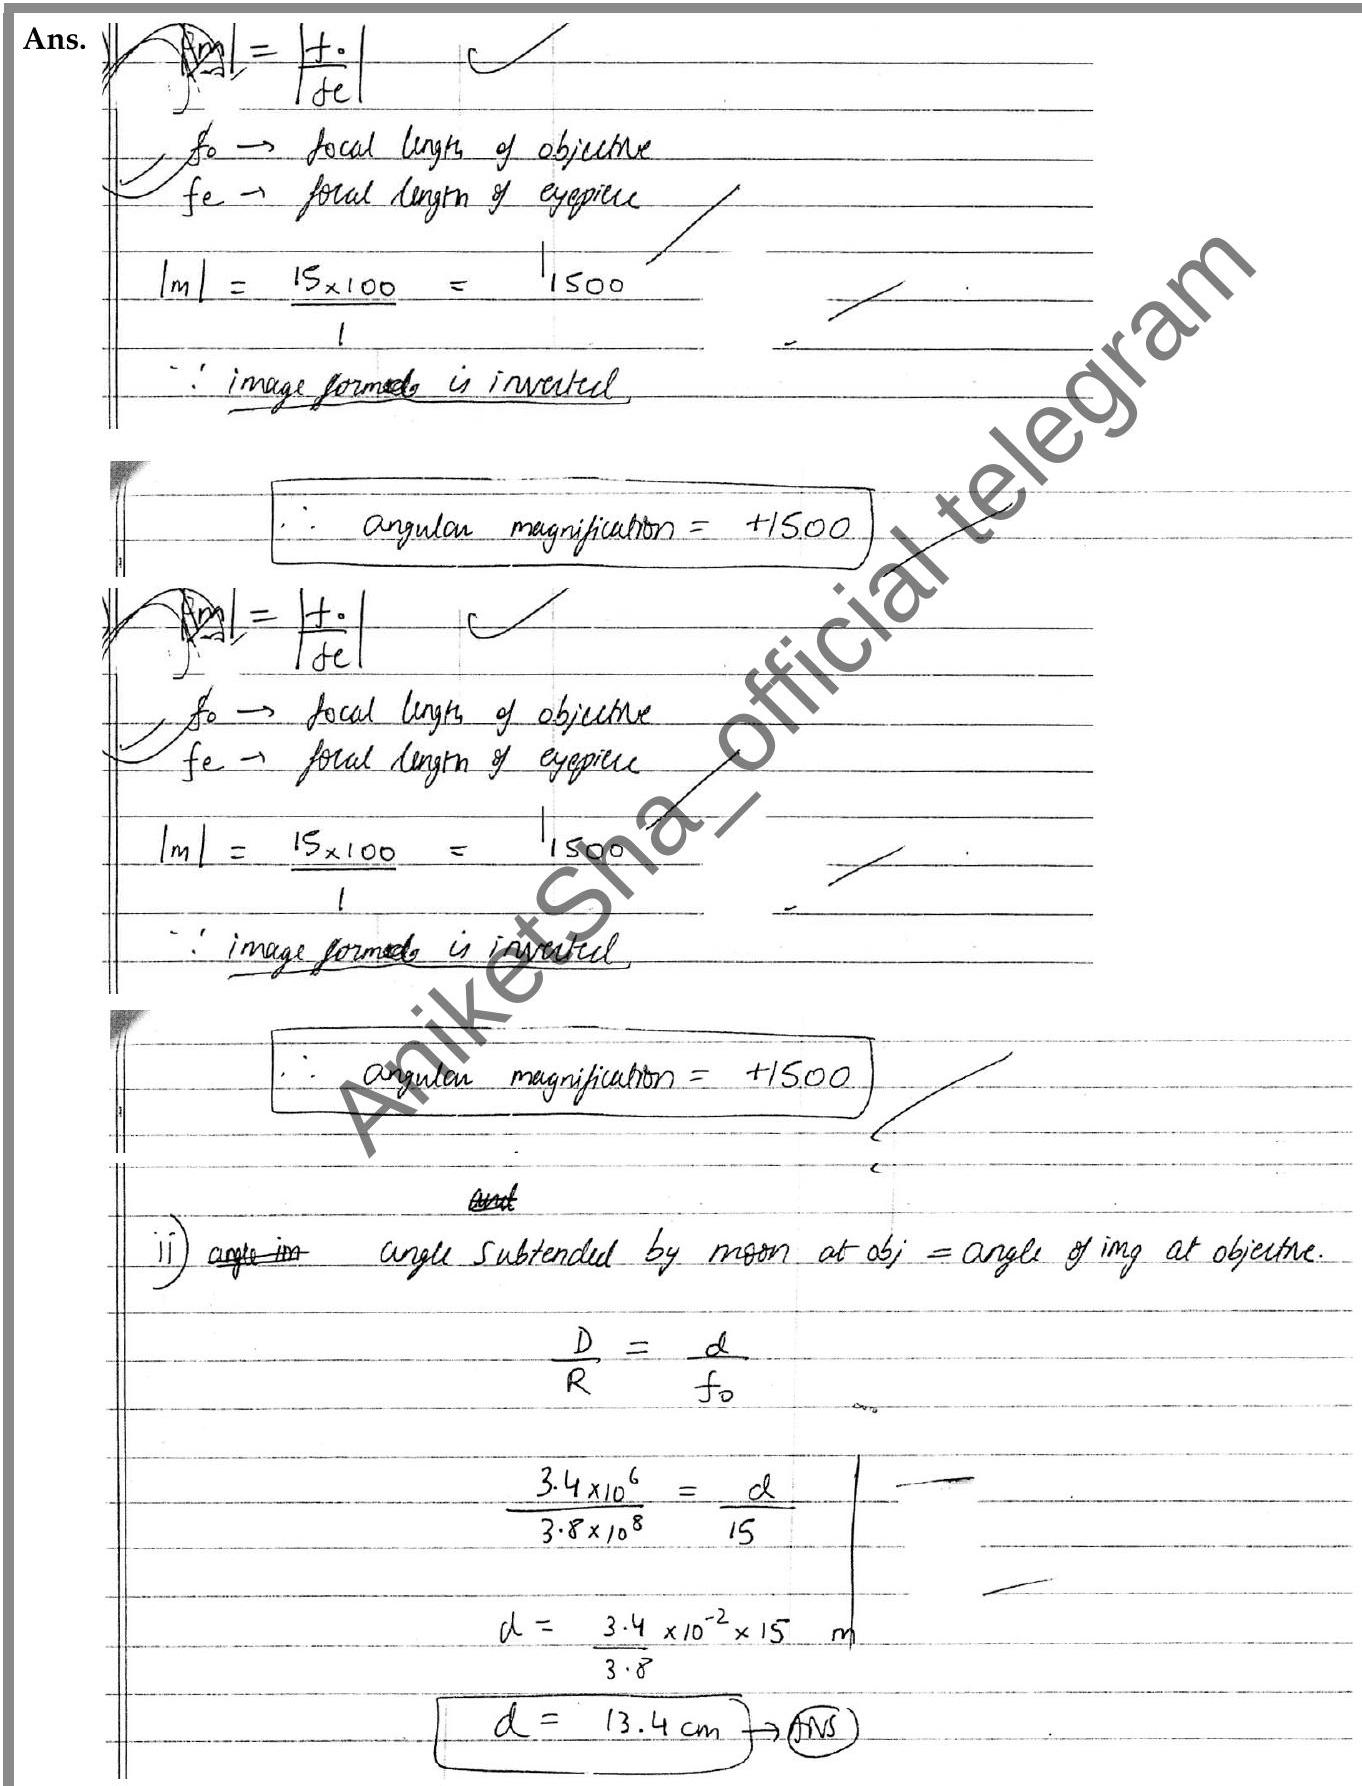 Ans.
|m| = |fo/fe|
fo → focal length of objective
fe → focal length of eyepiece
|m| = 15×100/1 = 1500
∵ image formed is inverted
∴ angular magnification = +1500
|m| = |fo/fe|
fo → focal length of objective
fe → focal length of eyepiece
|m| = 15×100/1 = 1500
∵ image formed is inverted
∴ angular magnification = +1500
AniketSha_official telegram
and
ii) angle im angle subtended by moon at obj = angle of img at objective.
D/R = d/fo
3.4×10⁶/3.8×10⁸ = d/15
d = 3.4/3.8 ×10⁻²×15 m
d = 13.4 cm → ANS